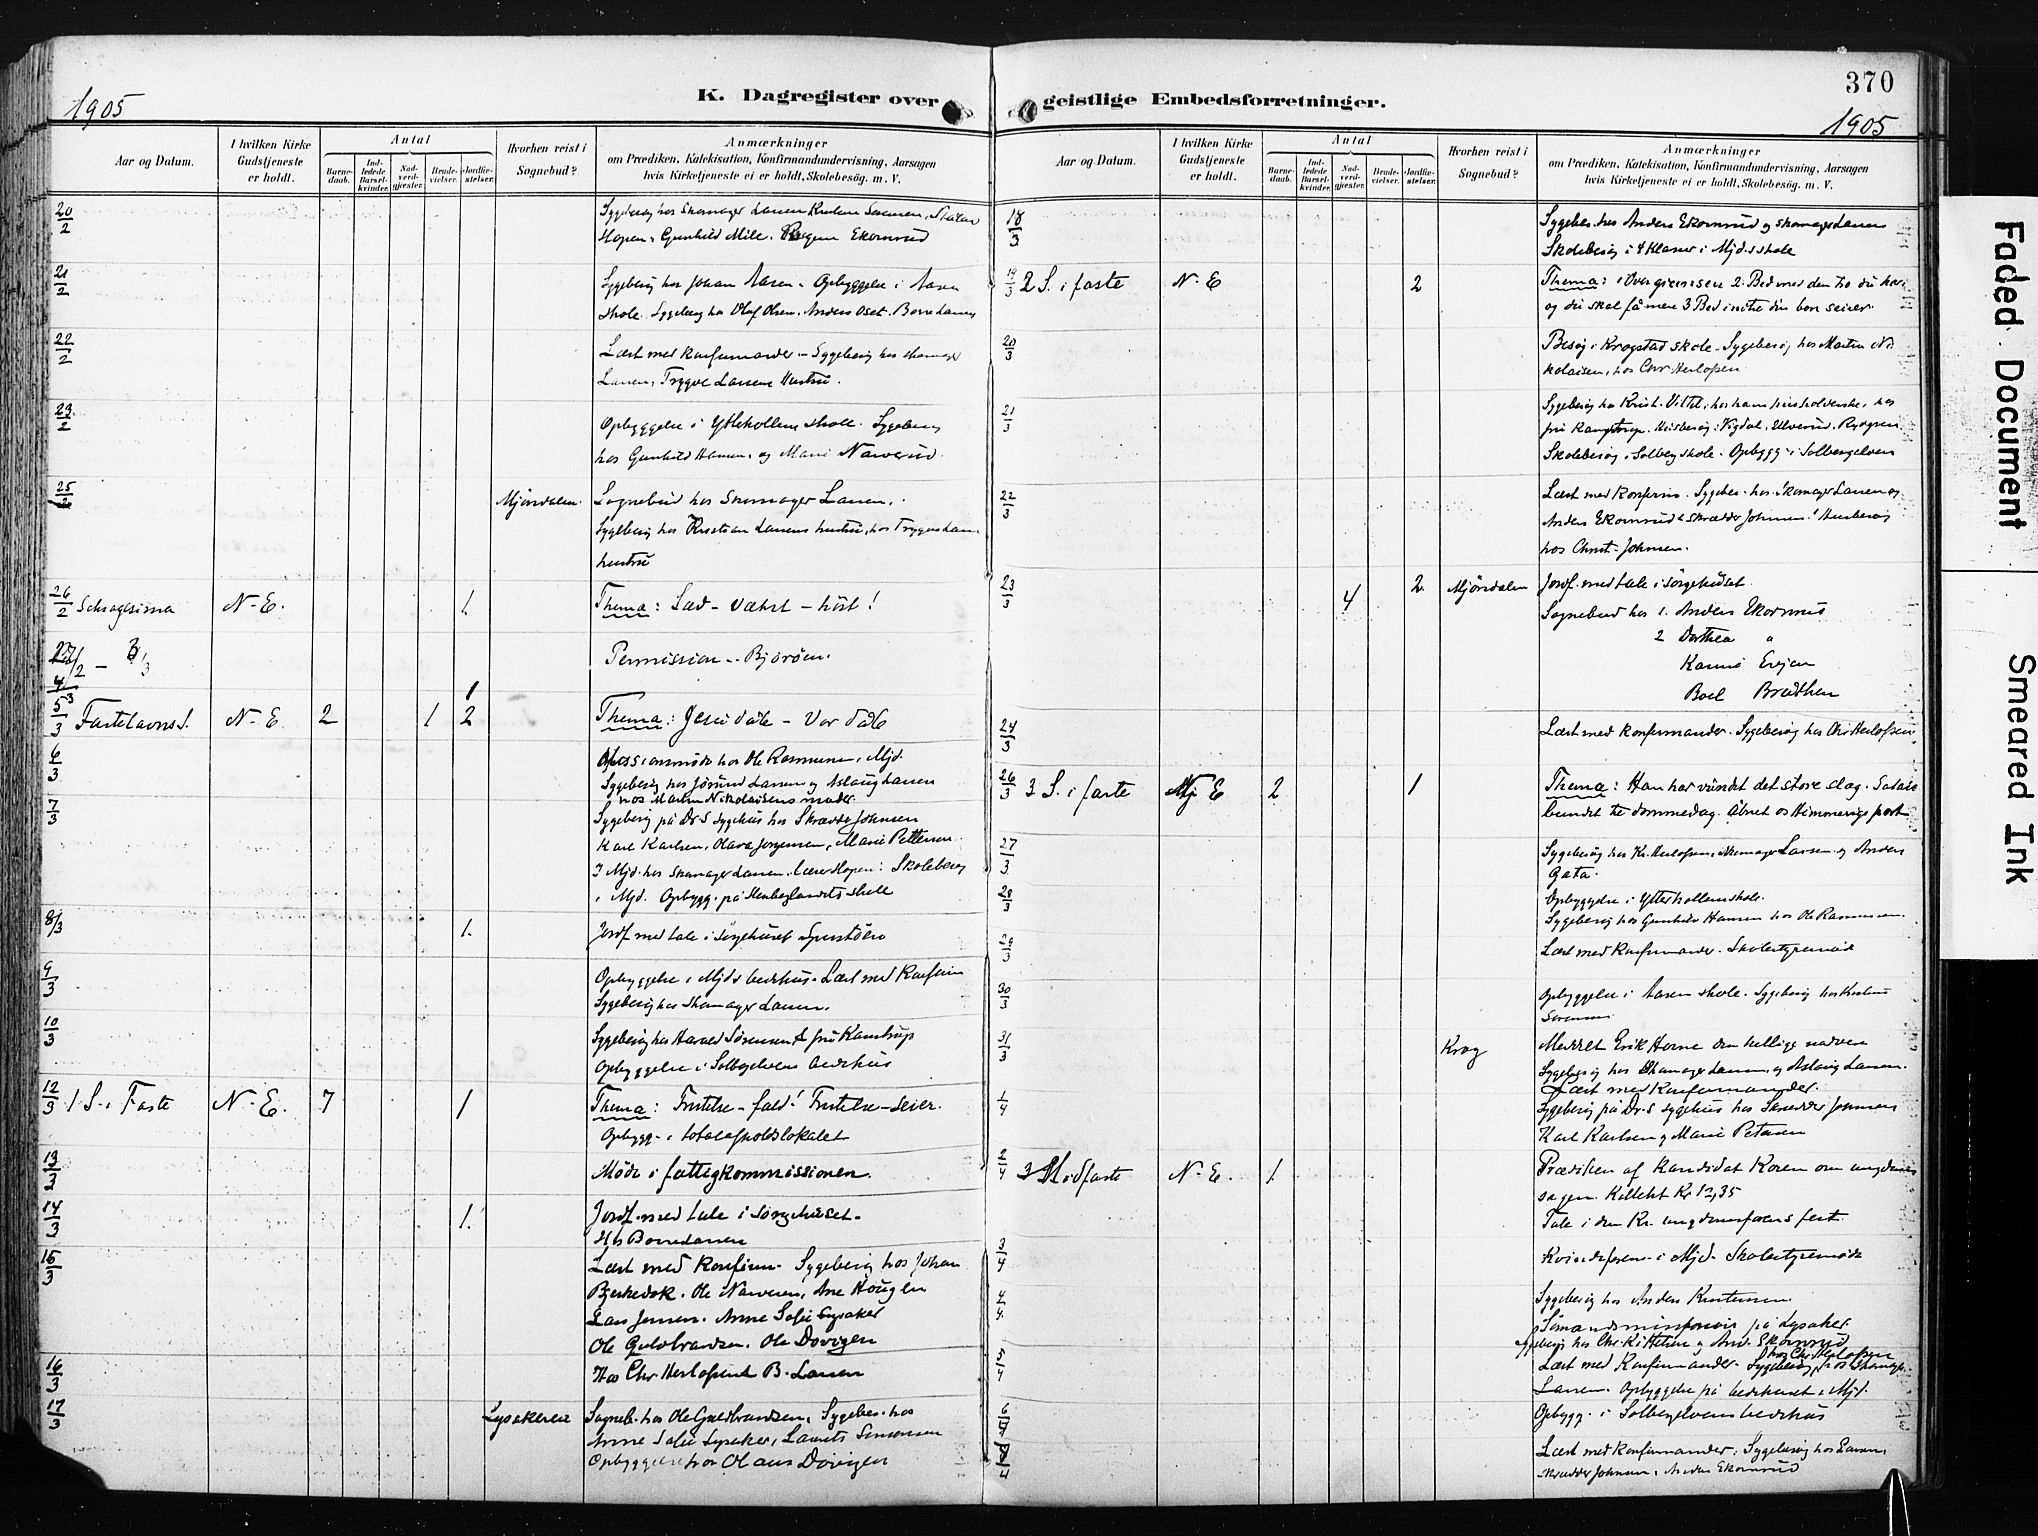 1905
K. Dagregister over
Aar og Datum.
I hvilken Kirke Gudstjeneste er holdt.
Antal
Barne-daab.
Ind-ledede Barsel-kvinder.
Nad-verd-gjester.
Brude-vielser.
Jordfæ-stelser.
Hvorhen reist i Sognebud?
Anmærkninger
om Prædiken, Katekisation, Konfirmandundervisning, Aarsagen
hvis Kirketjeneste ei er holdt, Skolebesög. m. V.
20/2 Sygebesøg hos Skomager Larsen
Hopen, Gunhild Mile. Ekornrud
21/2 Sygebesøg hos Johan Aasen. Opbyggelse i Aasen
skole. Sygebesøg hos Olaf Olsen, Anders Oset.
22/2 Læst med konfirmander - Sygebesøg hos skomager
Larsen, Trygve Larsens Hustru.
23/2 Opbyggelse i Ytterkollens skole. Sygebesøg
hos Gunhild Hansen og Marie Narverud.
25/2 Mjøndalen. Sognebud hos Skomager Larsen.
Sygebesøg hos Kristian Larsens hustru, hos Trygve Larsens
hustru
26/2 Sexagesima N. E. 1. Thema: Sæd - vækst - høst!
27/2 - 3/3 Permission - Bjørøen.
4/3 1
5/3 Fastelavns S. N. E 2 1 2 Thema: Jesu dåb - Vor dåb
6/3 hos Ole Rasmussen, Mjd.
Sygebesøg hos Jørund Larsen og Aslaug Larsen
hos Martin Nikolaisens moder.
7/3 Sygebesøg på Dr-s sygehus hos Skrædder Johnsen
Karl Karlsen, Olava Jørgensen, Marie Pettersen.
I Mjd. hos skomager Larsen, lærer Hopen: Skolebesøg
i Mjd. Opbygg. på Stenberglandets skole
8/3 1. Jordf. med tale i sørgehuset
9/3 Opbyggelse i Mjds bedehus. Læst med Konfirm
Sygebesøg hos skomager Larsen.
10/3 Sygebesøg hos Harald Sørensen & fru Kamstrup
Opbyggelse i Solbergelvens bedehus
12/3 1 S. i Faste N. E. 7 1 Thema: Fristelse - fald! Fristelse - seier.
Opbygg. i totalafholdslokalet
13/3 Møde i fattigkommissionen.
14/3 1. Jordf. med tale i sørgehuset.
15/3 Læst med Konfirm. Sygebesøg hos Johan
Ole Narverud, Ane Hougen
Lars Jensen. Anne Sofie Lysaker
Ole Guldbrandsen. Ole Dovigen
16/3 Hos Chr. Herlofsen & B. Larsen
17/3 Lysakeren Sogneb. hos Ole Guldbrandsen, Sygebes. hos
Anne Sofie Lysaker, Laurits Simonsen
Opbyggelse hos Olaus Dovigen
370
geistlige Embedsforretninger.
1905
Aar og Datum.
I hvilken Kirke Gudstjeneste er holdt.
Antal
Barne-daab.
Ind-ledede Barsel-kvinder.
Nad-verd-gjester.
Brude-vielser.
Jordfæ-stelser.
Hvorhen reist i Sognebud?
Anmærkninger
om Prædiken, Katekisation, Konfirmandundervisning, Aarsagen
hvis Kirketjeneste ei er holdt, Skolebesög. m. V.
18/3 Sygebes. hos Anders Ekornrud og skomager Larsen
Skolebesøg i 4 Klasser i Mjd.s skole
19/3 2 S. i faste N. E 2 Thema: 2. Bed med den tro du har
og du skal få mere 3 Bed indtil din bøn seirer
20/3 Besøg i Krogstad skole. Sygebesøg hos Martin Ni-
kolaisen, hos Chr. Herlofsen.
21/3 Sygebesøg hos Krist. Vittel, hos hans husholderske, hos
fru Kamstrup. Husbesøg i Vigdal, Ulverud,
Skolebesøg i Solberg skole. Opbygg. i Solbergelven
22/3 Læst med konfirm. Sygebes. hos skomager Larsen og
Anders Ekornrud & skrædder Johnsen! Husbesøg
hos Christ. Johnsen.
23/3 4 2. Mjøndalen Jordf. med tale i sørgehuset.
Sognebud hos 1. Anders Ekornrud
2 Dorthea "
Karine Evjen
Boel Bråthen
24/3 Læst med konfirmander. Sygebesøg hos Chr. Herlofsen
26/3 3 S. i faste Mj. E 2 1 Thema: Han har vundet det store slag. Satan
bundet til dommedag. Åbnet os Himmerigs port
27/3 Sygebesøg hos Kr. Herlofsen, skomager Larsen og Anders
Gata.
28/3 Opbyggelse i Ytterkollens skole.
Sygebesøg hos Gunhild Hansen hos Ole Rasmussen.
29/3 Læst med Konfirmander. Skolestyremøde
30/3 Opbyggelse i Aasen skole. Sygebesøg hos
Sørensen
31/3 Krog Meddelt Erik Horne den hellige nadvere
Sygebesøg hos Skomager Larsen og Aslaug Larsen.
Læst med Konfirmander.
1/4 Sygebesøg på Dr-s sygehus hos Skrædder Johnsen
Karl Karlsen og Marie Petersen
2/4 Midfaste N. E. 1. Prædiken af Kandidat Koren om ungdoms
sagen. Kollekt Kr 12,35
Tale i den Kr. ungdomsforens fest.
3/4 Kvindeforen. i Mjd. Skolestyremøde
4/4 Sygebesøg hos Anders Kristensen
Sømandsmissforen. på Lysaker.
Sygebesøg hos Chr. Kittelsen og And. Ekornrud
hos Chr. Herlofsen
5/4 Læst med Konfirmander. Sygebesøg hos Skomager
Larsen. Opbyggelse på bedehuset i Mjd.
6/4 Opbygg. i Solbergelvens bedehus
/4 Læst med konfirmander. Sygebesøg hos Larsen,
skrædder Johnsen, Anders Ekornrud
Faded Document
Smeared Ink